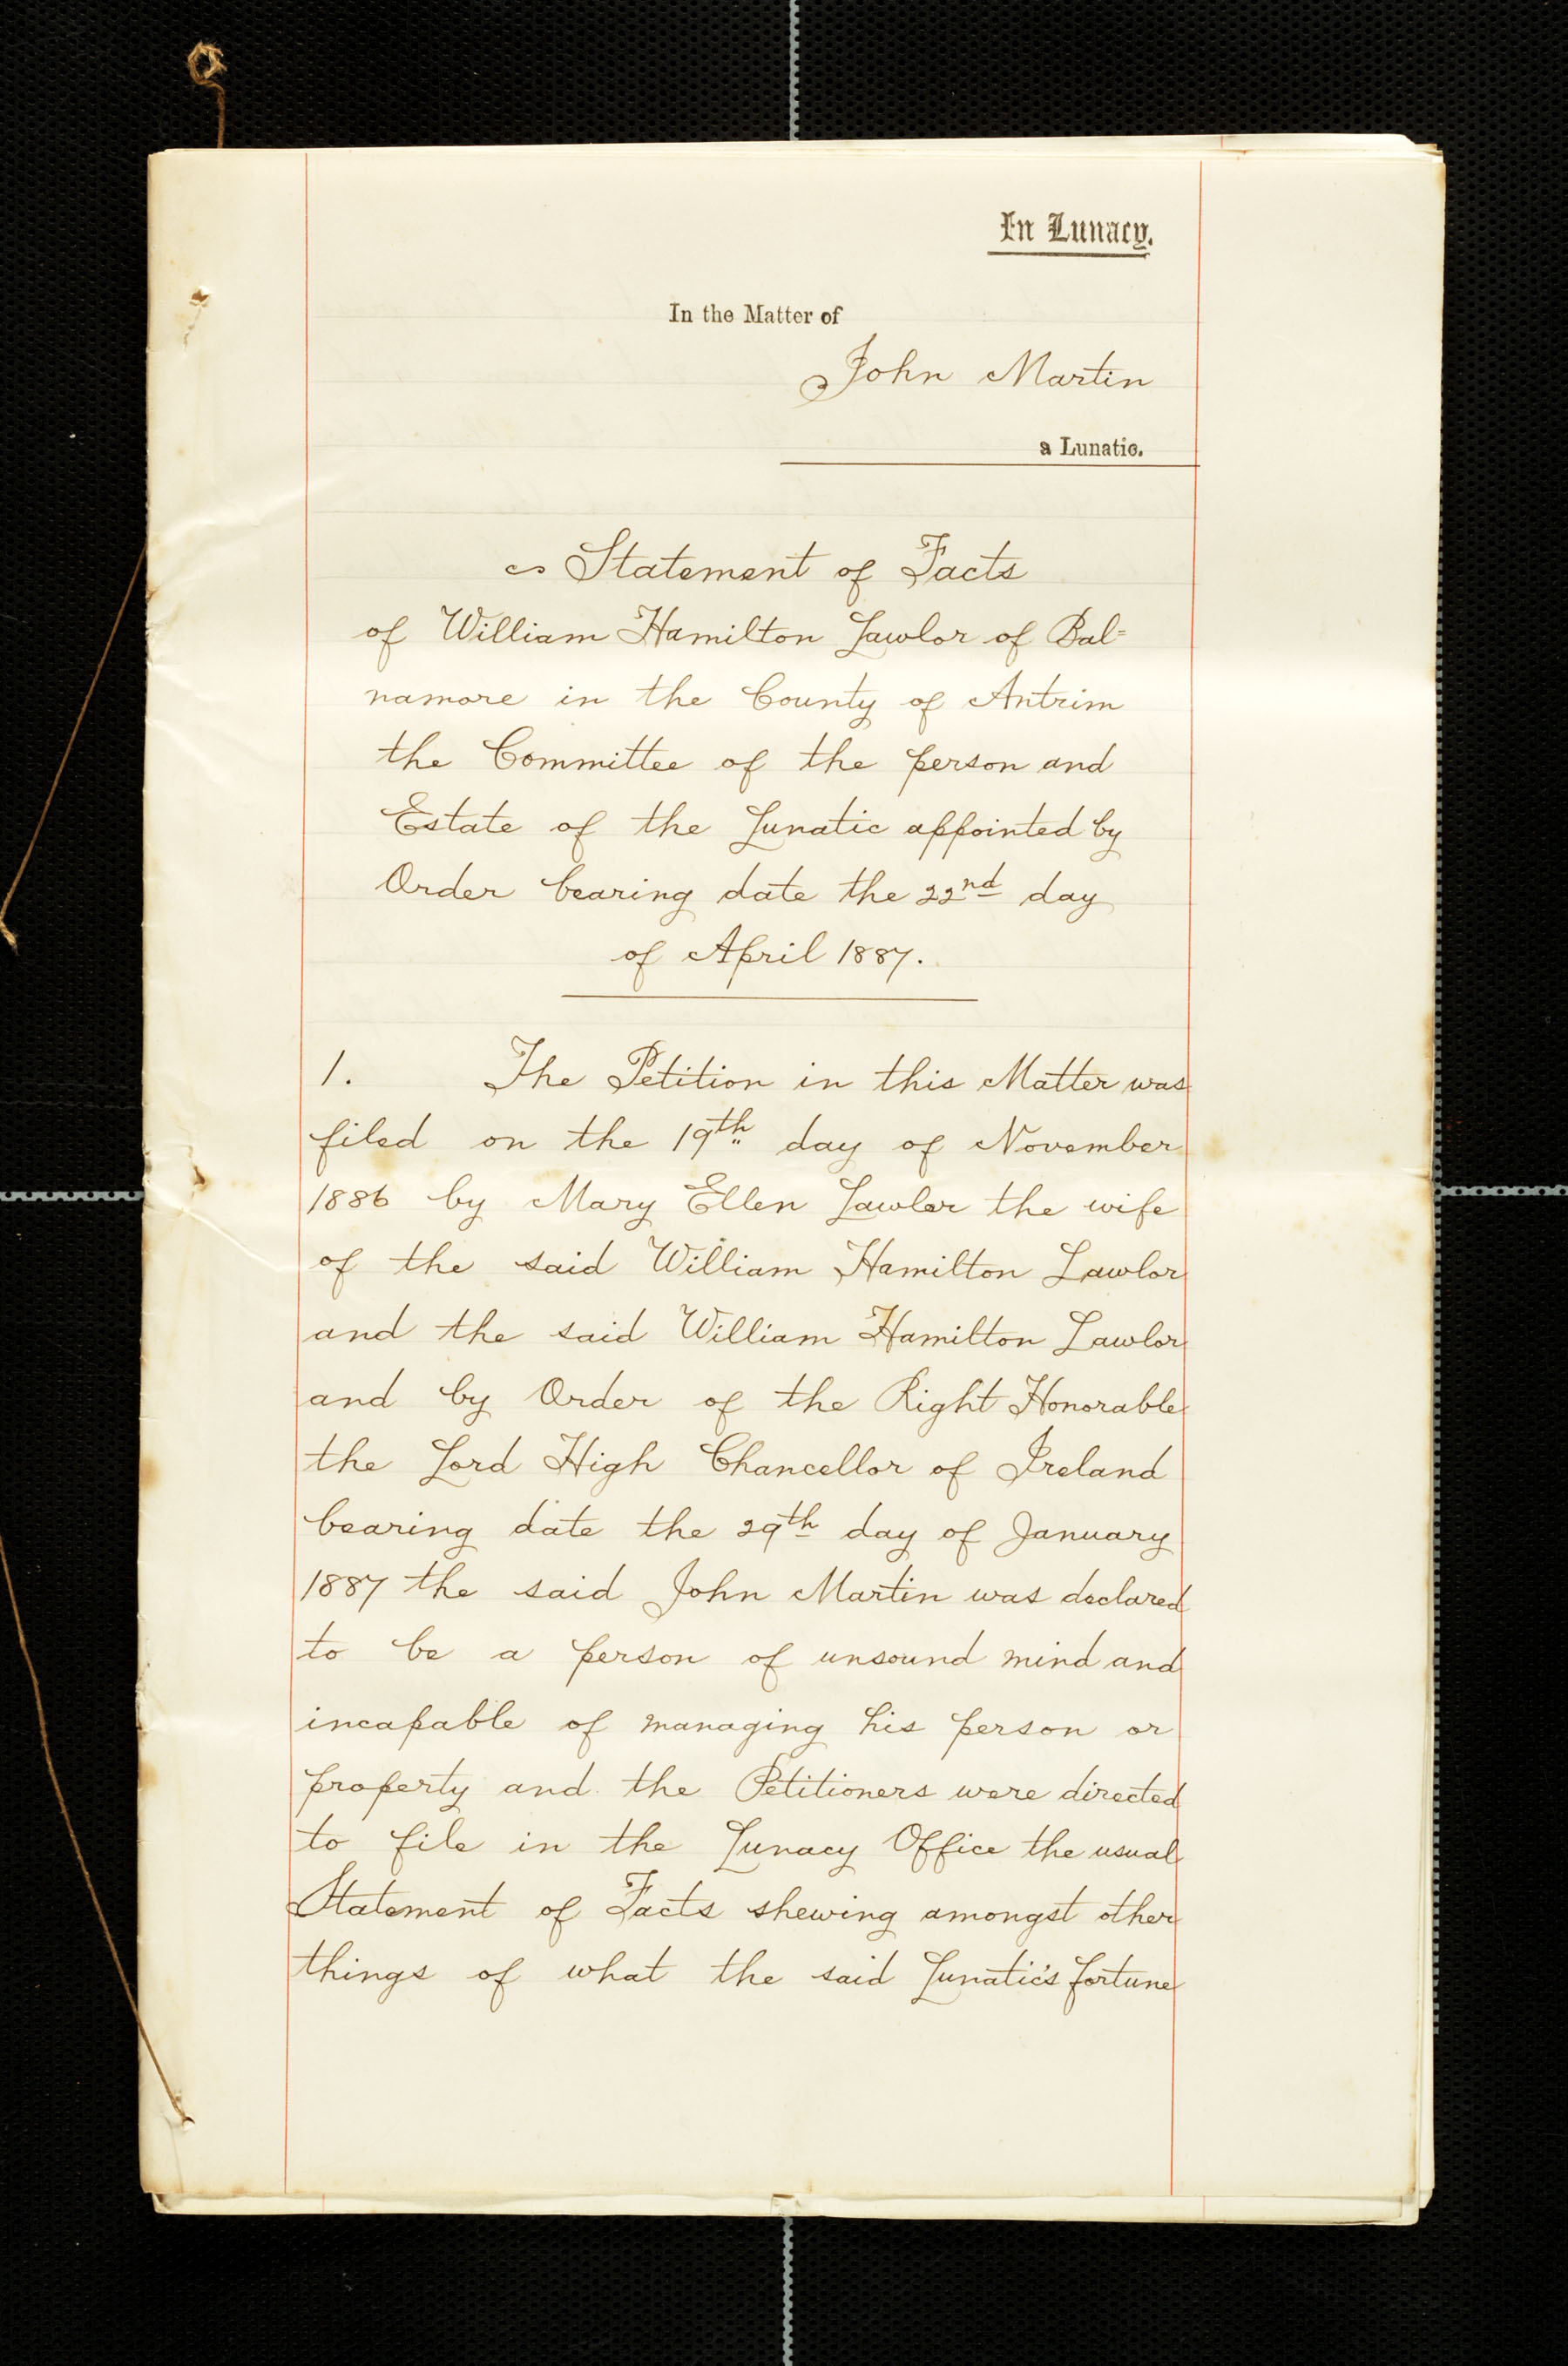 In Lunacy.
In the Matter of
John Martin
a Lunatic.
Statement of Facts
of William Hamilton Lawlor of Bal=
namore in the County of Antrim
the Committee of the person and
Estate of the Lunatic appointed by
Order bearing date the 22nd day
of April 1887.
1. The Petition in this Matter was
filed on the 19th day of November
1886 by Mary Ellen Lawlor the wife
of the said William Hamilton Lawlor
and the said William Hamilton Lawlor
and by Order of the Right Honorable
the Lord High Chancellor of Ireland
bearing date the 29th day of January
1887 the said John Martin was declared
to be a person of unsound mind and
incapable of managing his person or
property and the Petitioners were directed
to file in the Lunacy Office the usual
Statement of Facts shewing amongst other
things of what the said Lunatic's fortune